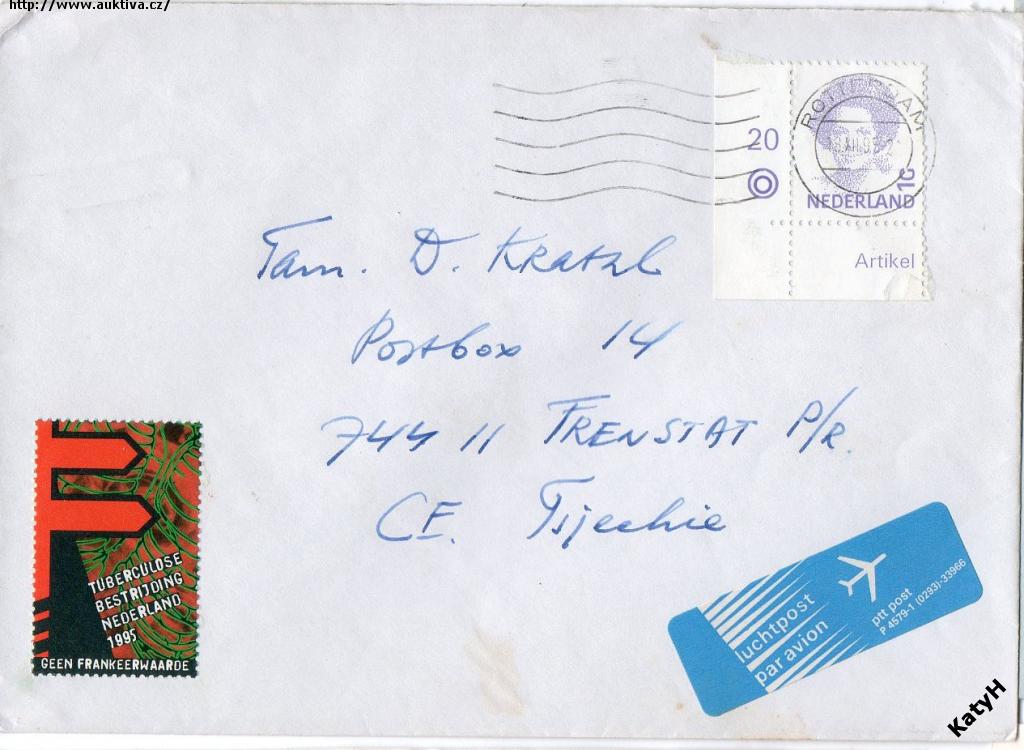 http://www.auktiva.cz/
20
ROTTERDAM
NEDERLAND
1G
Artikel
Fam. D. Kratzl
Postbox 14
744 11 FRENSTAT P/R.
CE. Tsjechie
TUBERCULOSE
BESTRIJDING
NEDERLAND
1995
GEEN FRANKEERWAARDE
luchtpost
par avion
ptt post
P 4579-1 (0293)-33966
KatyH